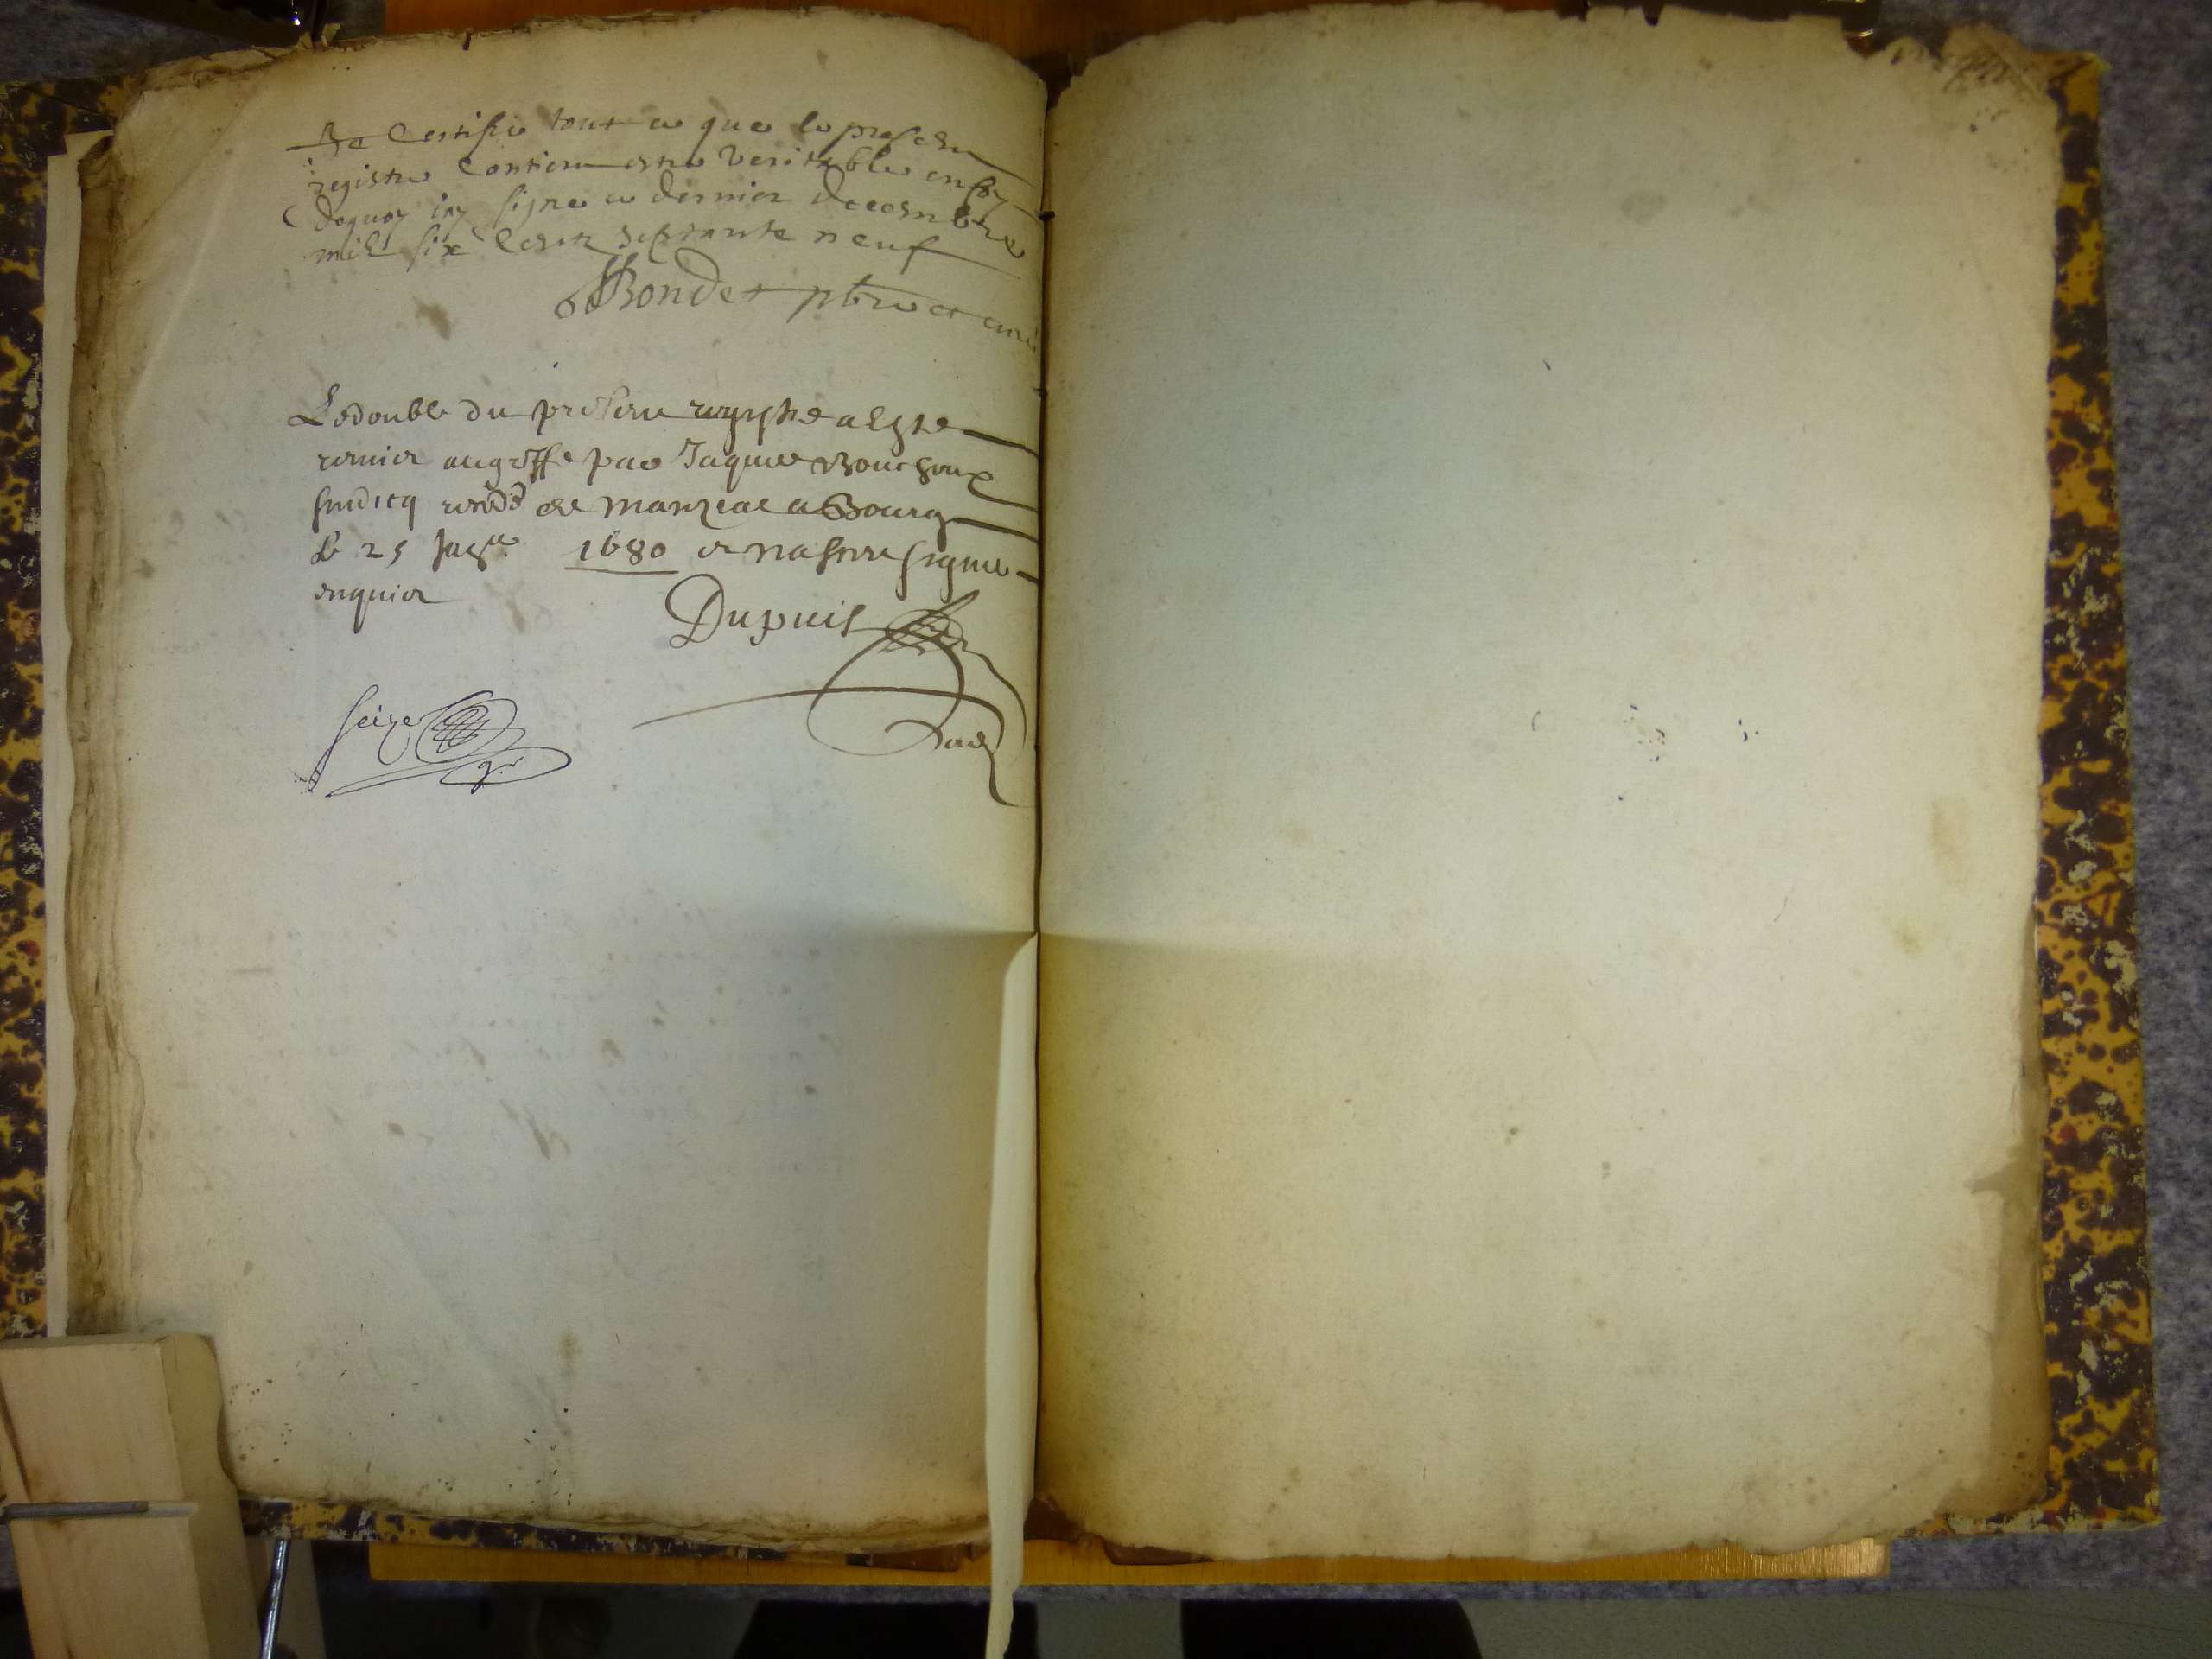 Je Certifie tout ce que le present
registre Contient estre veritable en foy
dequoy iay signe ce dernier decembre
mil six Cents septante neuf
Bondet pbre et curé
Le double du present registre a este
remier au greffe par Jaques Bouchoux
sindicq de Manziat a Bourg
le 25 1680 et na sceu signer
enquier
Dupuis
seize